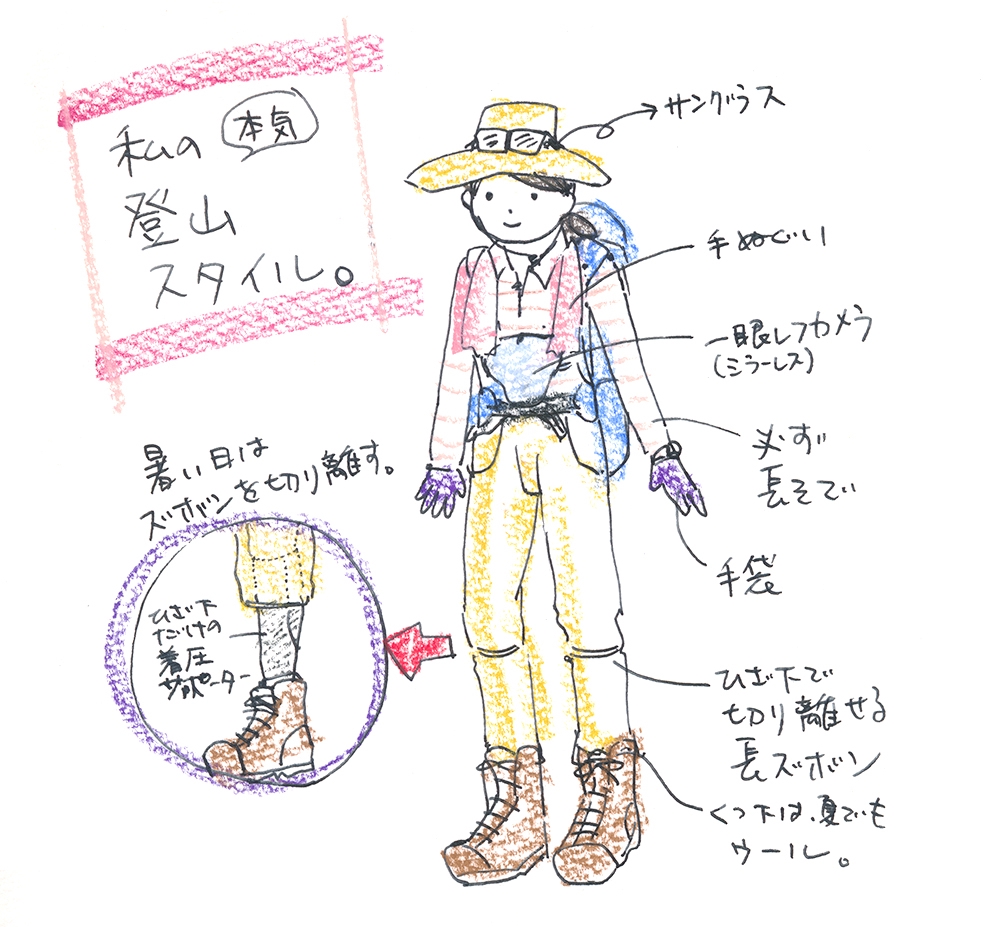 私の 本気
登山
スタイル。
サングラス
手ぬぐい
一眼レフカメラ
(ミラーレス)
必ず
長そで
手袋
ひざ下で
切り離せる
長ズボン
くつ下は、夏でも
ウール。
暑い日は
ズボンを切り離す。
ひざ下
だけの
着圧
サポーター